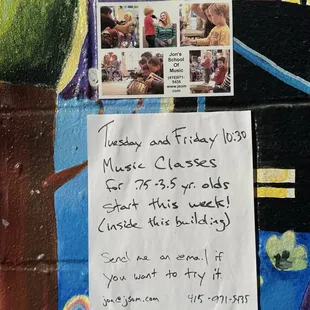 Jon's
School
Of
Music
(415)971-
5435
www.jsom
com
Tuesday and Friday 10:30
Music Classes
for .75-3.5 yr. olds
start this week!
(inside this building)
Send me an email if
you want to try it
jon@jsom.com 415-971-5435